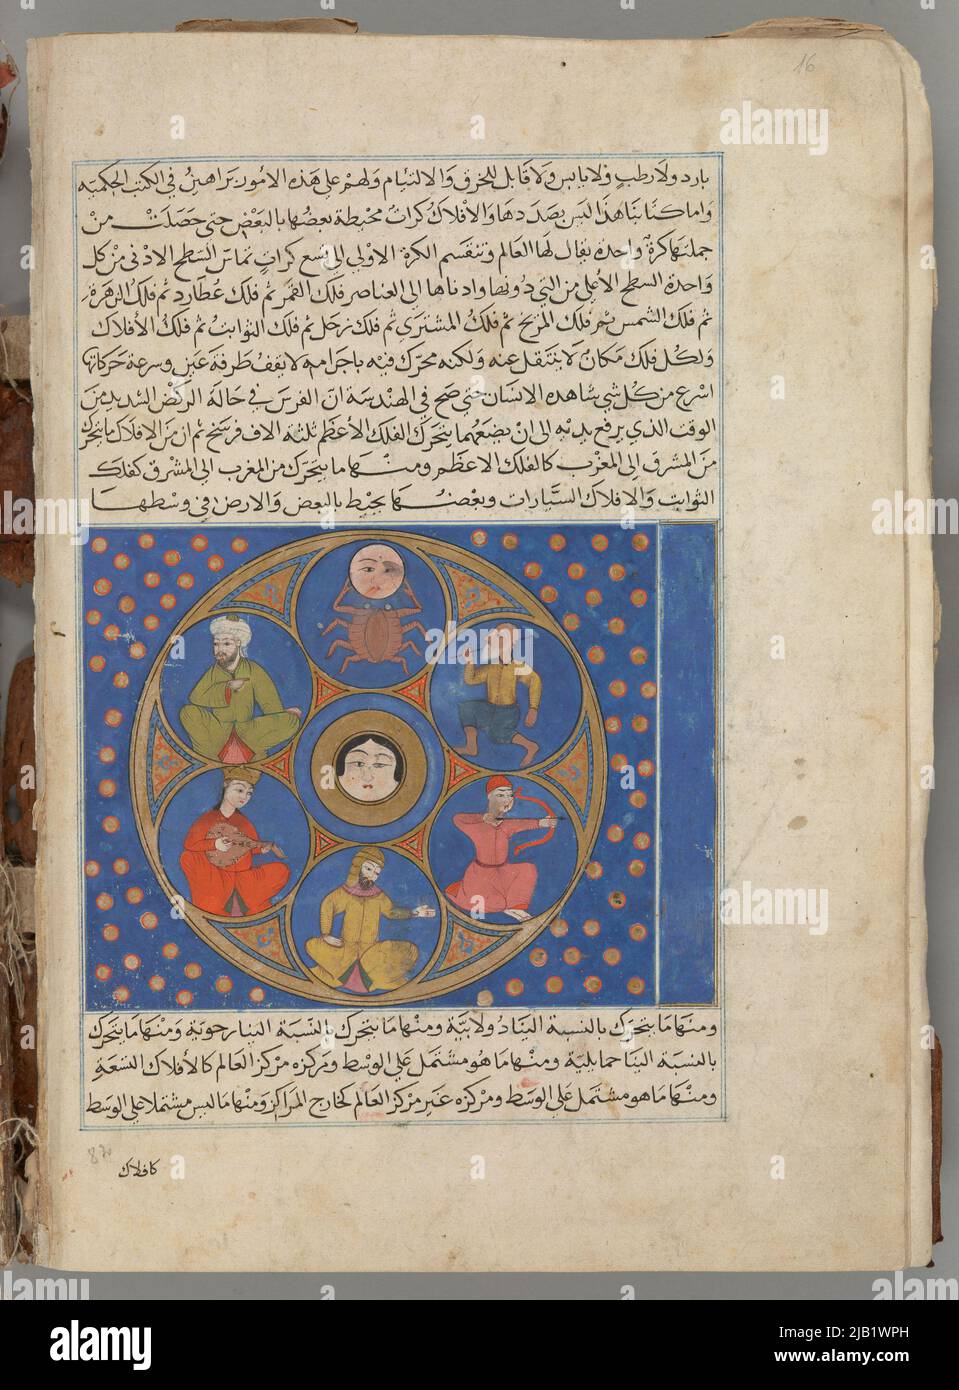 16
بارد ولا رطب ولا يابس ولا قابل للخرق والالتيام ولهم على هذه الامور براهين في الكتب الحكميه
واما كتابنا هذا ليس بصددها والافلاك كرات محيطة بعضها بالبعض حتى حصلت من
جملتها كرة واحدة يقال لها العالم وتنقسم الكرة الاولى الى تسع كرات تماس السطح الادنى من كل
واحدة السطح الأعلى من التي دونها وادناها الى العناصر فلك القمر ثم فلك عطارد ثم فلك الزهرة
ثم فلك الشمس ثم فلك المريخ ثم فلك المشتري ثم فلك زحل ثم فلك الثوابت ثم فلك الأفلاك
ولكل فلك مكان لا ينتقل عنه ولكنه محرك فيه باجرامه لا يقف طرفة عين وسرعة حركاتها
اسرع من كل شي شاهده الانسان حتى صح في الهندسة ان الفرس في حالة الركض الشديد من
الوقت الذي يرفع يديه الى ان يضعهما يتحرك الفلك الأعظم ثلثة الاف فرسخ ثم ان من الافلاك ما يتحرك
من المشرق الى المغرب كالفلك الاعظم ومنها ما يتحرك من المغرب الى المشرق كفلك
الثوابت والافلاك السيارات وبعضها يحيط بالبعض والارض في وسطها
ومنها ما يتحرك بالنسبة الينا دولابية ومنها ما يتحرك بالنسبة الينا رحوية ومنها ما يتحرك
بالنسبة الينا حمايلية ومنها ما هو مشتمل على الوسط ومركزه مركز العالم كالأفلاك التسعة
ومنها ما هو مشتمل على الوسط ومركزه غير مركز العالم كخارج المراكز ومنها ما ليس مشتملا على الوسط
كافلاك
alamy
Image ID: 2JB1WPH
www.alamy.com